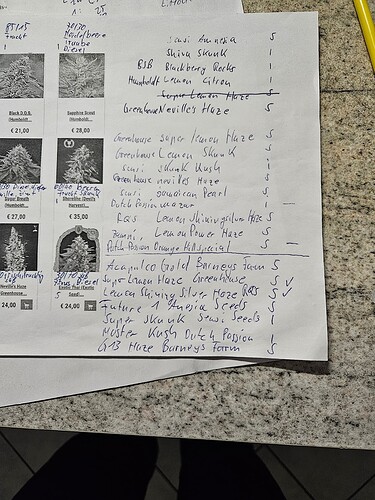 85/15
Frucht
70/30
Heidelbeere
Traube
Diesel
Black D.O.S.
(Humboldt...
€ 21,00
Sapphire Scout
(Humboldt...
€ 28,00
Sugar Breath
(Humboldt...
€ 27,00
Shoreline (Devil's
Harvest...
€ 35,00
Neville's Haze
Greenhouse...
24,00
Exotic Thai (Exotic
Seed)...
€ 24,00
Sensi Amnesia S
Shiva Skunk I
BSB Blackberry Rocks I
Humboldt Lemon Citron I
Super Lemon Haze S
Greenhouse Neville's Haze S
Greenhouse super lemon Haze S
Greenhouse Lemon Skunk S
Sensi skunk Kush I
Greenhouse nevilles Haze S
Sensi jamaican Pearl S
Dutch Passion mazar I —
RQS Lemon Shining silver Haze S
Lemon Power Haze S
Dutch Passion Orange Hill special S —
Acapulco Gold Barneys Farm S
Super Lemon Haze Greenhouse S ✓
Lemon Shining Silver Haze RQS S ✓
Future 1 Anesia Seeds S
Super Skunk Sensi Seeds I
Master Kush Dutch Passion I
G13 Haze Barneys Farm S